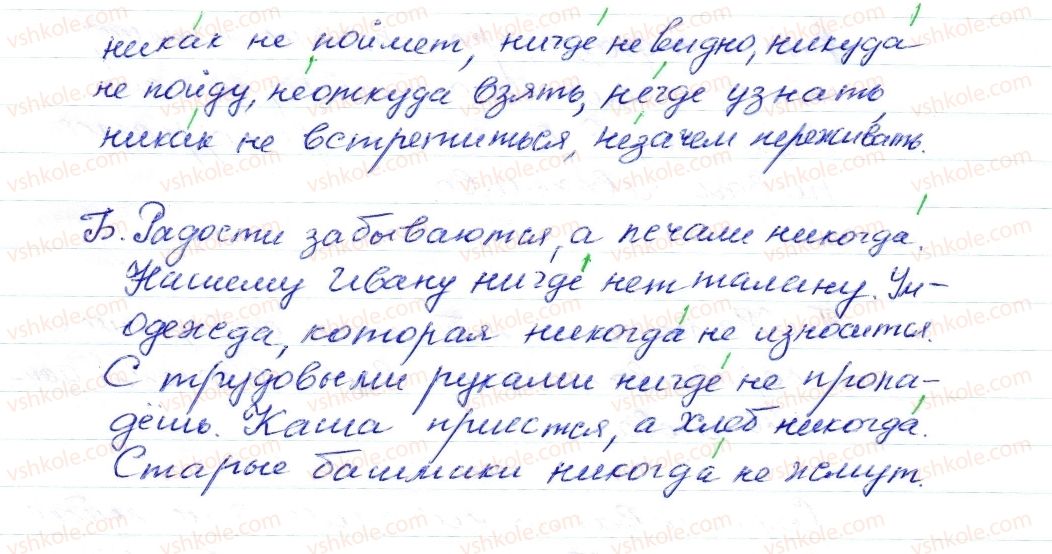 ника́к не поймет, нигде́ не видно, никуда́
не пойду, не́откуда взять, не́где узнать,
ника́к не встретиться, не́зачем переживать.
Б. Радости забываются, а печали никогда́.
Нашему Ивану нигде́ нет талану. Ум -
одежда, которая никогда́ не износится.
С трудовыми руками нигде́ не пропа-
дёшь. Каша приестся, а хлеб никогда́.
Старые башмаки никогда́ не жмут.
vshkole.com